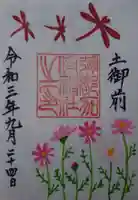 土御前
令和三年九月二十四日